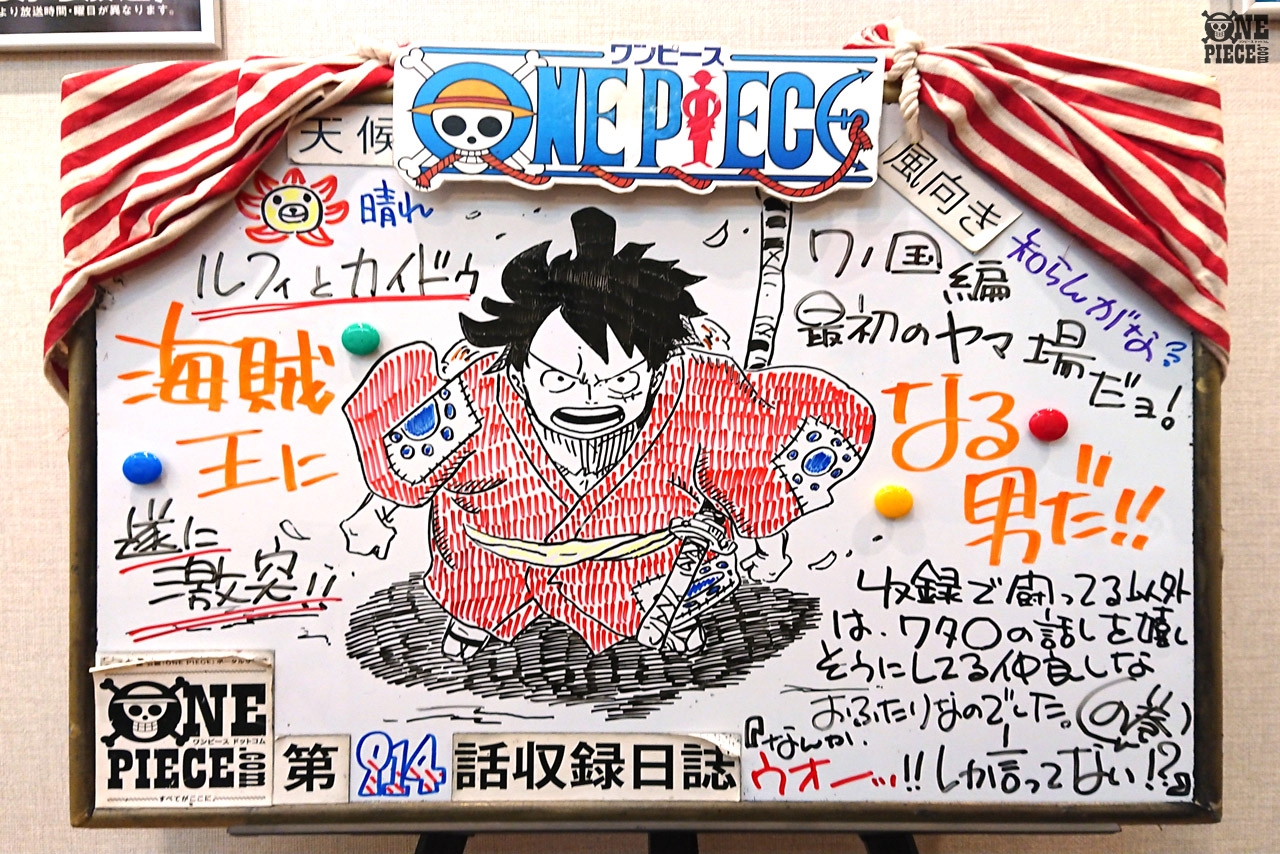 より放送時間・曜日が異なります。
ONE
PIECE.com
ワンピース
ONE PIECE
天候
風向き
晴れ
知らんがな??
ルフィとカイドウ
海賊
王に
遂に
激突!!
ワノ国編
最初のヤマ場だョ!
なる
男だ!!
収録で闘ってる以外
は、ワタ〇の話しを嬉し
そうにしてる仲良しな
おふたりなのでした。(の巻)
『なんか、
ウオーッ..!!しか言ってない!?』
ONE
ワンピース ドットコム
PIECE.com
すべてがここに
第914話収録日誌